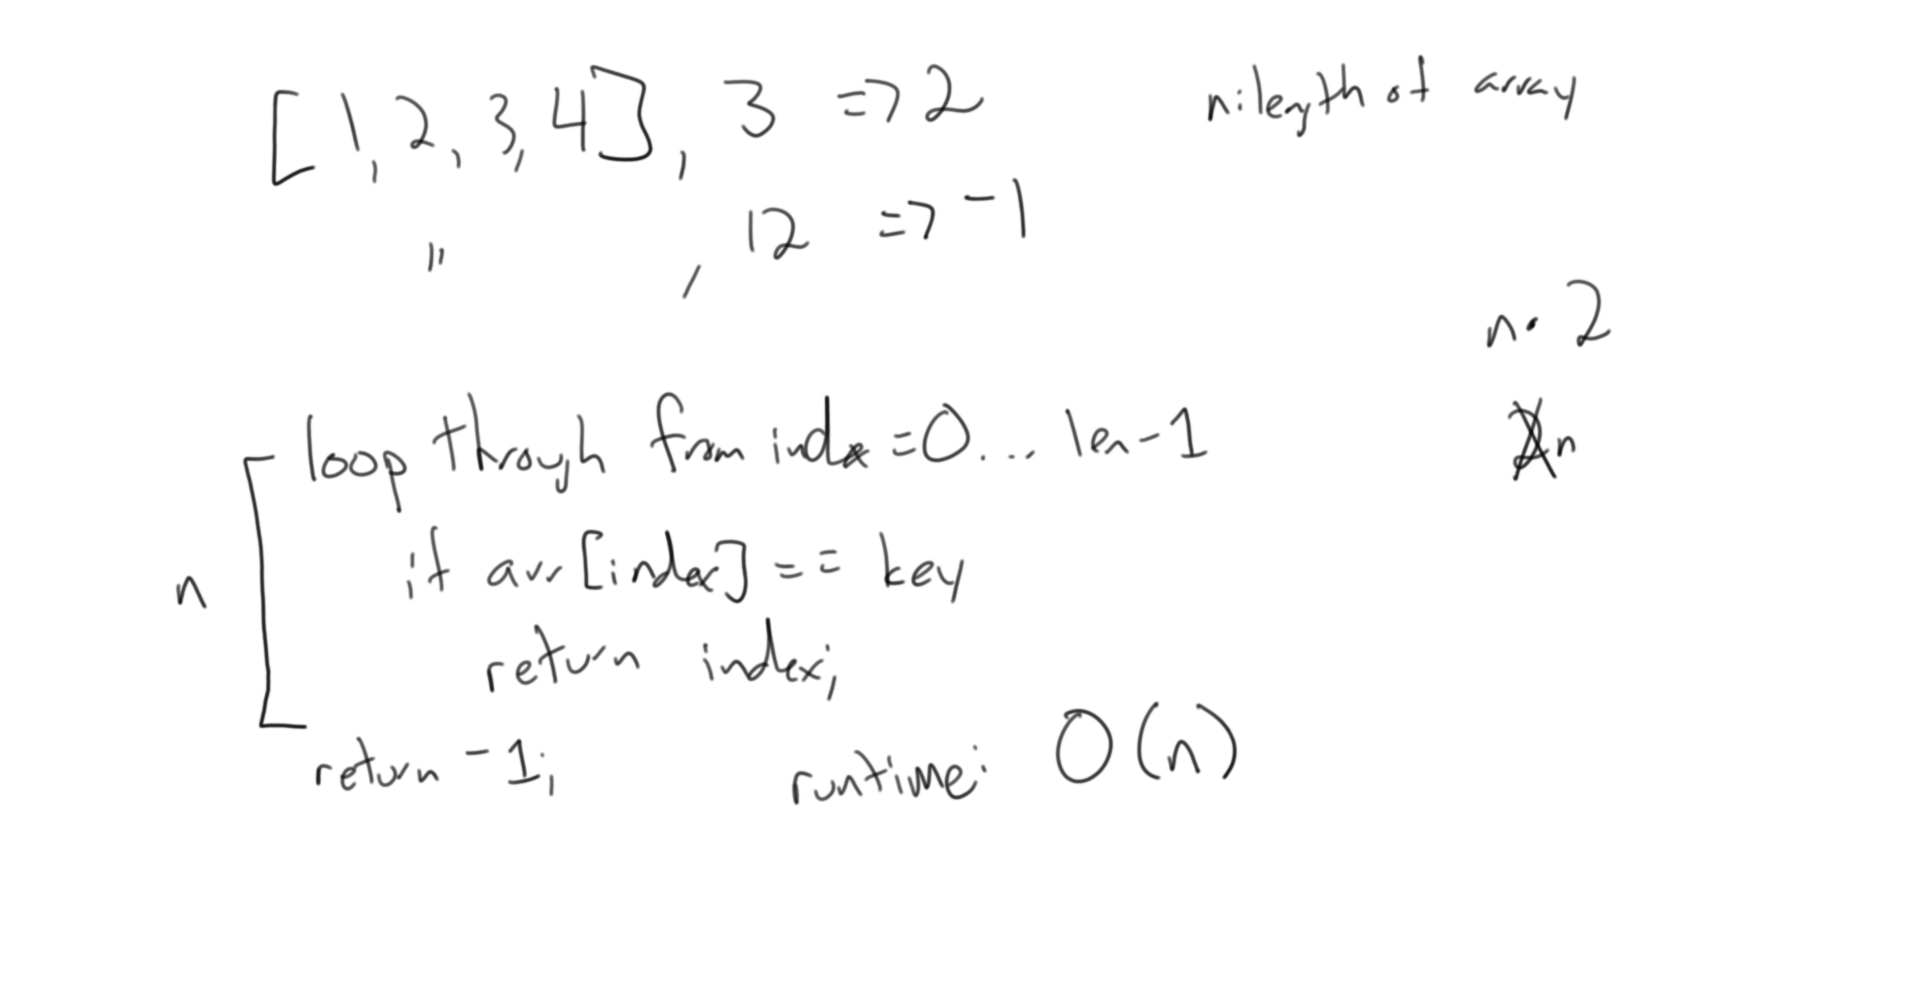 [1, 2, 3, 4], 3 => 2
n: length of array
" , 12 => -1
n • 2
loop through from index = 0 ... len - 1
2n
n
if arr[index] == key
return index;
return -1;
runtime: O(n)